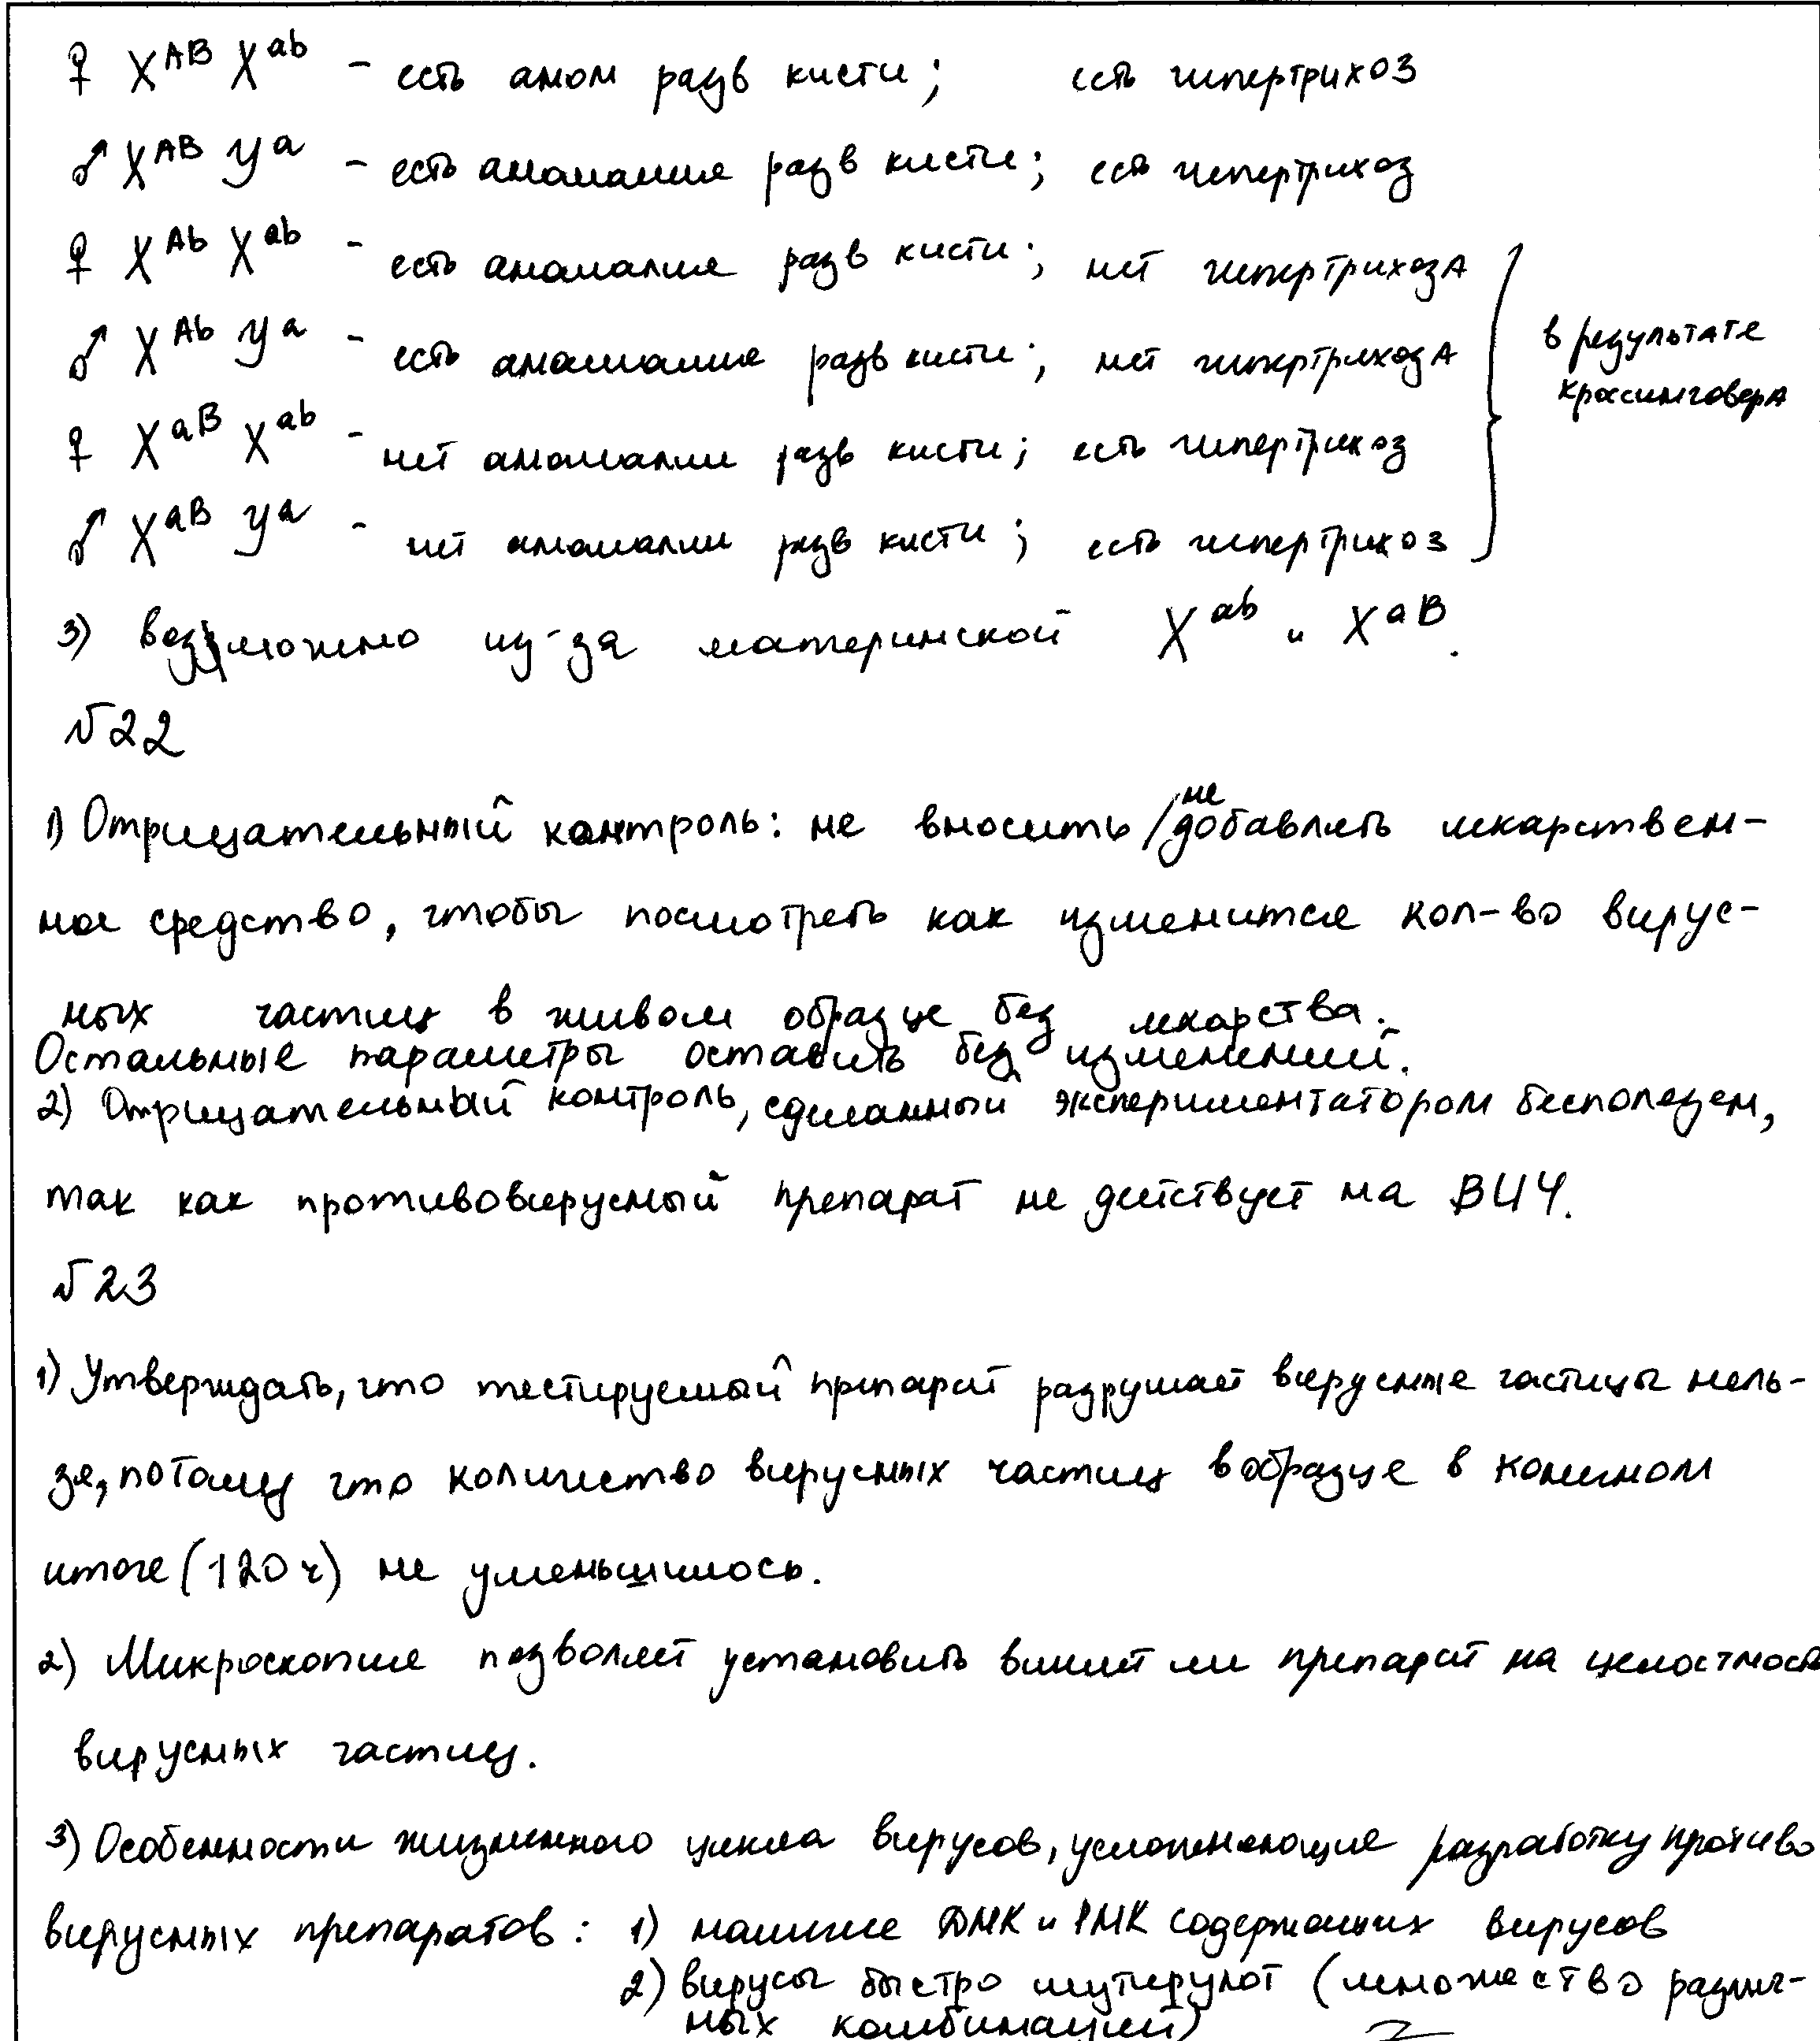 ♀ X^AB X^ab - есть аном разв кисти; есть гипертрихоз
♂ X^AB Y^a - есть аномалия разв кисти; есть гипертрихоз
♀ X^Ab X^ab - есть аномалия разв кисти; нет гипертрихоза
♂ X^Ab Y^a - есть аномалия разв кисти; нет гипертрихоза
в результате
кроссинговера
♀ X^aB X^ab - нет аномалии разв кисти; есть гипертрихоз
♂ X^aB Y^a - нет аномалии разв кисти; есть гипертрихоз
3) возможно из-за материнской X^ab и X^aB.
№22
1) Отрицательный контроль: не вносить/не добавлять лекарствен-
ное средство, чтобы посмотреть как изменится кол-во вирус-
ных частиц в живом образце без лекарства.
Остальные параметры оставить без изменений.
2) Отрицательный контроль, сделанный экспериментатором бесполезен,
так как противовирусный препарат не действует на ВИЧ.
№23
1) Утверждать, что тестируемый препарат разрушает вирусные частицы нель-
зя, потому что количество вирусных частиц в образце в конечном
итоге (120 ч) не уменьшилось.
2) Микроскопия позволяет установить влияет ли препарат на целостность
вирусных частиц.
3) Особенности жизненного цикла вирусов, усложняющие разработку противо
вирусных препаратов: 1) наличие ДНК и РНК содержащих вирусов
2) вирусы быстро мутируют (множество различ-
ных комбинаций)